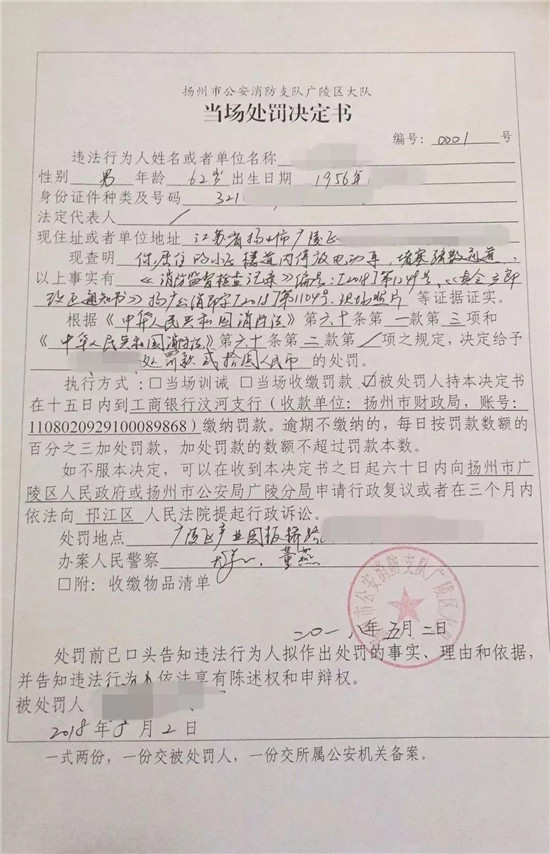 扬州市公安消防支队广陵区大队
当场处罚决定书
编号：0001号
违法行为人姓名或者单位名称
性别 男 年龄 62岁 出生日期 1956年
身份证件种类及号码 321
法定代表人 /
现住址或者单位地址 江苏省扬州市广陵区
现查明 你居住的小区楼道内停放电动车，堵塞疏散通道，
以上事实有《消防监督检查记录》编号：[2018]第1209号、《责令立即
改正通知书》扬广公消即字[2018]第1109号、现场照片 等证据证实。
根据《中华人民共和国消防法》第六十条第一款第三项和
《中华人民共和国消防法》第六十条第二款/项之规定，决定给予
处罚款贰拾圆人民币 的处罚。
执行方式：□当场训诫 □当场收缴罚款 ☑被处罚人持本决定书
在十五日内到工商银行汶河支行（收款单位：扬州市财政局，账号：
1108020929100089868）缴纳罚款。逾期不缴纳的，每日按罚款数额的
百分之三加处罚款，加处罚款的数额不超过罚款本数。
如不服本决定，可以在收到本决定书之日起六十日内向扬州市广
陵区人民政府或扬州市公安局广陵分局申请行政复议或者在三个月内
依法向 邗江区 人民法院提起行政诉讼。
处罚地点 广陵区产业园板桥路
办案人民警察 董燕
□附：收缴物品清单
市公安消防支队广陵区大队
二〇一八年五月二日
处罚前已口头告知违法行为人拟作出处罚的事实、理由和依据，
并告知违法行为人依法享有陈述权和申辩权。
被处罚人
2018年5月2日
一式两份，一份交被处罚人，一份交所属公安机关备案。